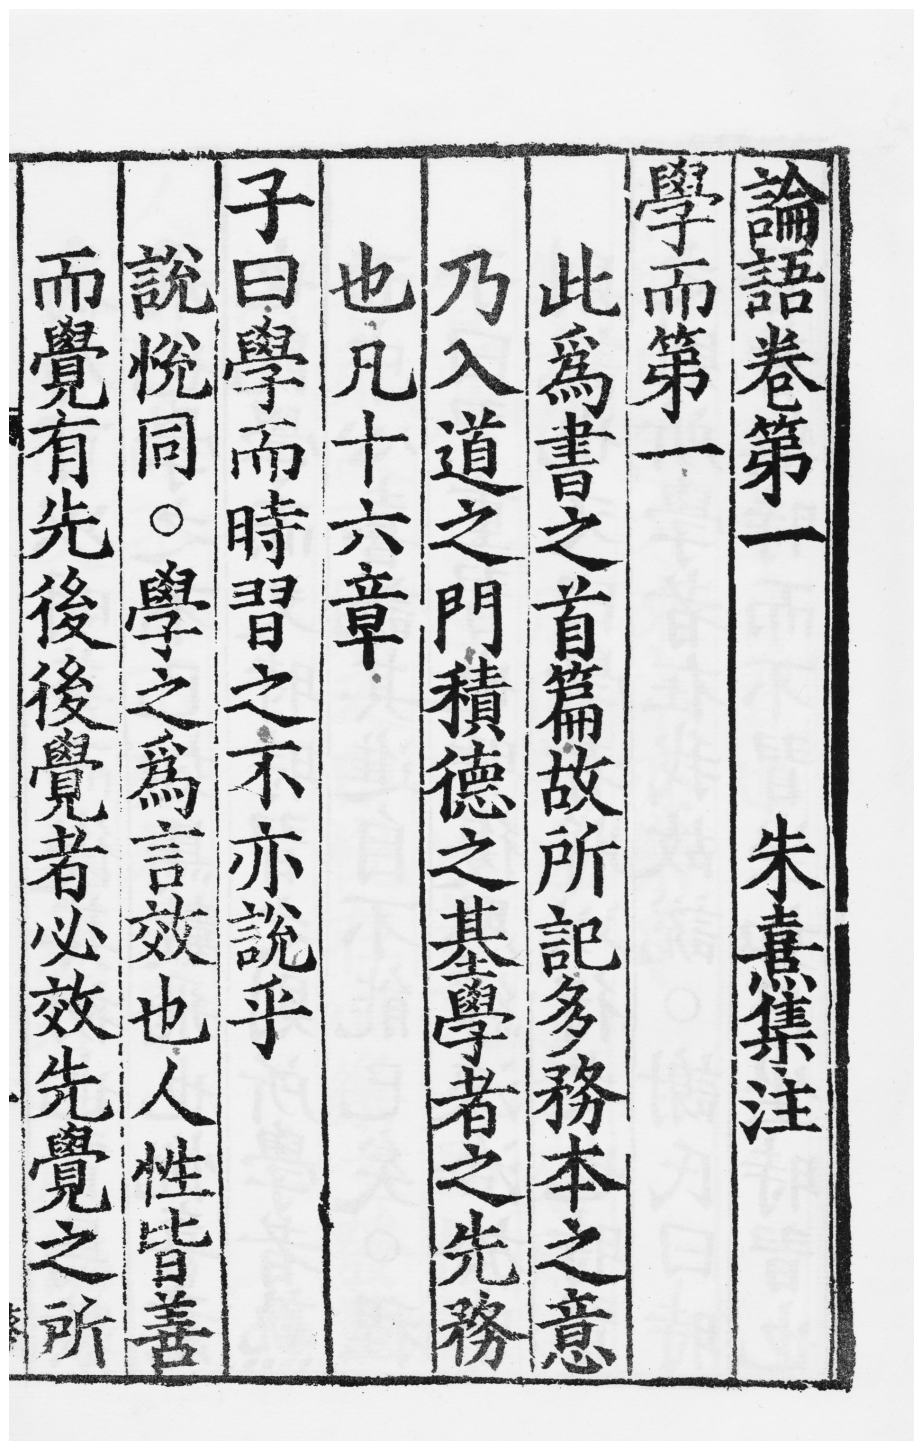 論語卷第一 朱熹集注
學而第一
此爲書之首篇故所記多務本之意
乃入道之門積德之基學者之先務
也凡十六章
子曰學而時習之不亦說乎
說悅同○學之爲言效也人性皆善
而覺有先後後覺者必效先覺之所